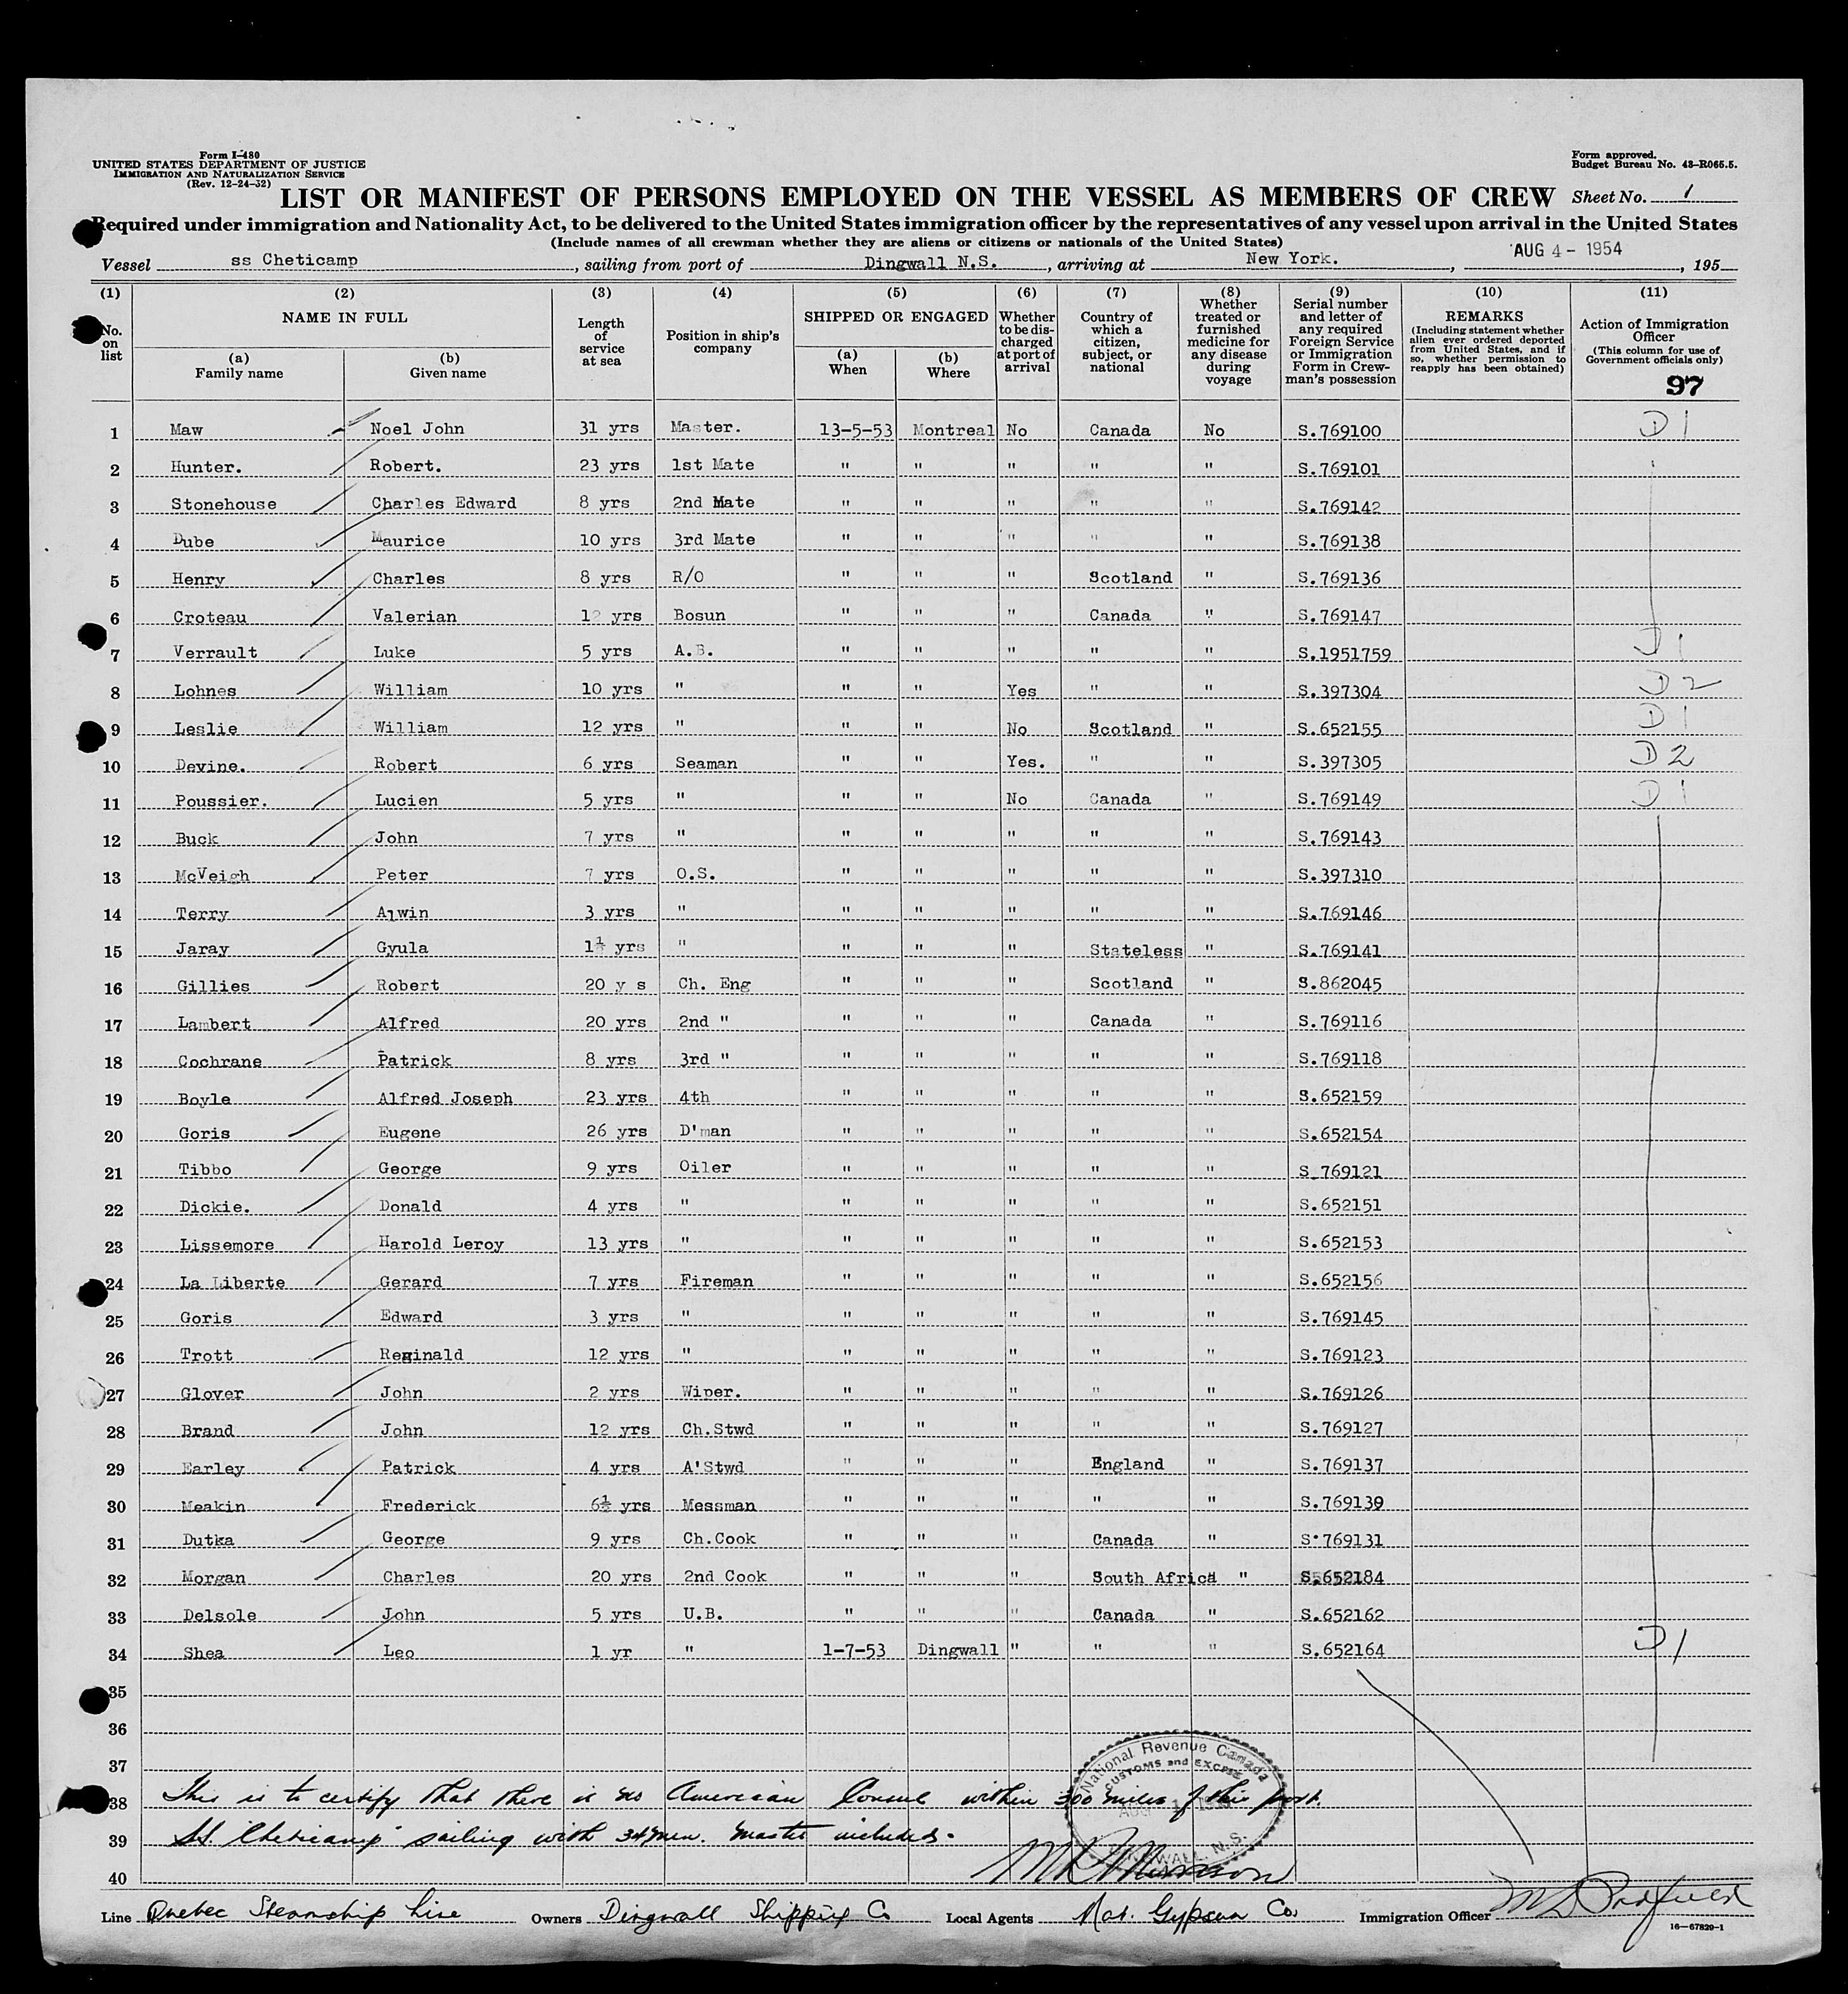 Form I-480
UNITED STATES DEPARTMENT OF JUSTICE
IMMIGRATION AND NATURALIZATION SERVICE
(Rev. 12-24-52)
Form approved.
Budget Bureau No. 43-R065.5.
LIST OR MANIFEST OF PERSONS EMPLOYED ON THE VESSEL AS MEMBERS OF CREW Sheet No. 1
Required under immigration and Nationality Act, to be delivered to the United States immigration officer by the representatives of any vessel upon arrival in the United States
(Include names of all crewman whether they are aliens or citizens or nationals of the United States)
Vessel ss Cheticamp, sailing from port of Dingwall N.S., arriving at New York., AUG 4 - 1954, 195
(1) (2) (3) (4) (5) (6) (7) (8) (9) (10) (11)
No. on list
NAME IN FULL
(a) Family name
(b) Given name
Length of service at sea
Position in ship's company
SHIPPED OR ENGAGED
(a) When
(b) Where
Whether to be discharged at port of arrival
Country of which a citizen, subject, or national
Whether treated or furnished medicine for any disease during voyage
Serial number and letter of any required Foreign Service or Immigration Form in Crewman's possession
REMARKS
(Including statement whether alien ever ordered deported from United States, and if so, whether permission to reapply has been obtained)
Action of Immigration Officer
(This column for use of Government officials only)
97
1 Maw Noel John 31 yrs Master. 13-5-53 Montreal No Canada No S.769100 D 1
2 Hunter. Robert. 23 yrs 1st Mate " " " " " S.769101
3 Stonehouse Charles Edward 8 yrs 2nd Mate " " " " " S.769142
4 Dube Maurice 10 yrs 3rd Mate " " " " " S.769138
5 Henry Charles 8 yrs R/O " " " Scotland " S.769136
6 Croteau Valerian 12 yrs Bosun " " " Canada " S.769147
7 Verrault Luke 5 yrs A.B. " " " " " S.1951759 D 1
8 Lohnes William 10 yrs " " " Yes " " S.397304 D 2
9 Leslie William 12 yrs " " " No Scotland " S.652155 D 1
10 Devine. Robert 6 yrs Seaman " " Yes. " " S.397305 D 2
11 Poussier. Lucien 5 yrs " " " No Canada " S.769149 D 1
12 Buck John 7 yrs " " " " " " S.769143
13 McVeigh Peter 7 yrs O.S. " " " " " S.397310
14 Terry Alwin 3 yrs " " " " " " S.769146
15 Jaray Gyula 1½ yrs " " " " Stateless " S.769141
16 Gillies Robert 20 y s Ch. Eng " " " Scotland " S.862045
17 Lambert Alfred 20 yrs 2nd " " " " Canada " S.769116
18 Cochrane Patrick 8 yrs 3rd " " " " " " S.769118
19 Boyle Alfred Joseph 23 yrs 4th " " " " " S.652159
20 Goris Eugene 26 yrs D'man " " " " " S.652154
21 Tibbo George 9 yrs Oiler " " " " " S.769121
22 Dickie. Donald 4 yrs " " " " " " S.652151
23 Lissemore Harold Leroy 13 yrs " " " " " " S.652153
24 La Liberte Gerard 7 yrs Fireman " " " " " S.652156
25 Goris Edward 3 yrs " " " " " " S.769145
26 Trott Reginald 12 yrs " " " " " " S.769123
27 Glover John 2 yrs Wiper. " " " " " S.769126
28 Brand John 12 yrs Ch.Stwd " " " " " S.769127
29 Earley Patrick 4 yrs A'Stwd " " " England " S.769137
30 Meakin Frederick 6½ yrs Messman " " " " " S.769139
31 Dutka George 9 yrs Ch.Cook " " " Canada " S.769131
32 Morgan Charles 20 yrs 2nd Cook " " " South Africa " S.652184
33 Delsole John 5 yrs U.B. " " " Canada " S.652162
34 Shea Leo 1 yr " 1-7-53 Dingwall " " " S.652164 D 1
35
36
37
National Revenue Canada
CUSTOMS and EXCISE
38 This is to certify that there is no American Consul within 300 miles of this port.
39 SS. "Cheticamp" sailing with 34 men. Master included.
DINGWALL, N.S.
40
Line Quebec Steamship Line Owners Dingwall Shipping Co Local Agents Nat. Gypsum Co. Immigration Officer
16-67829-1